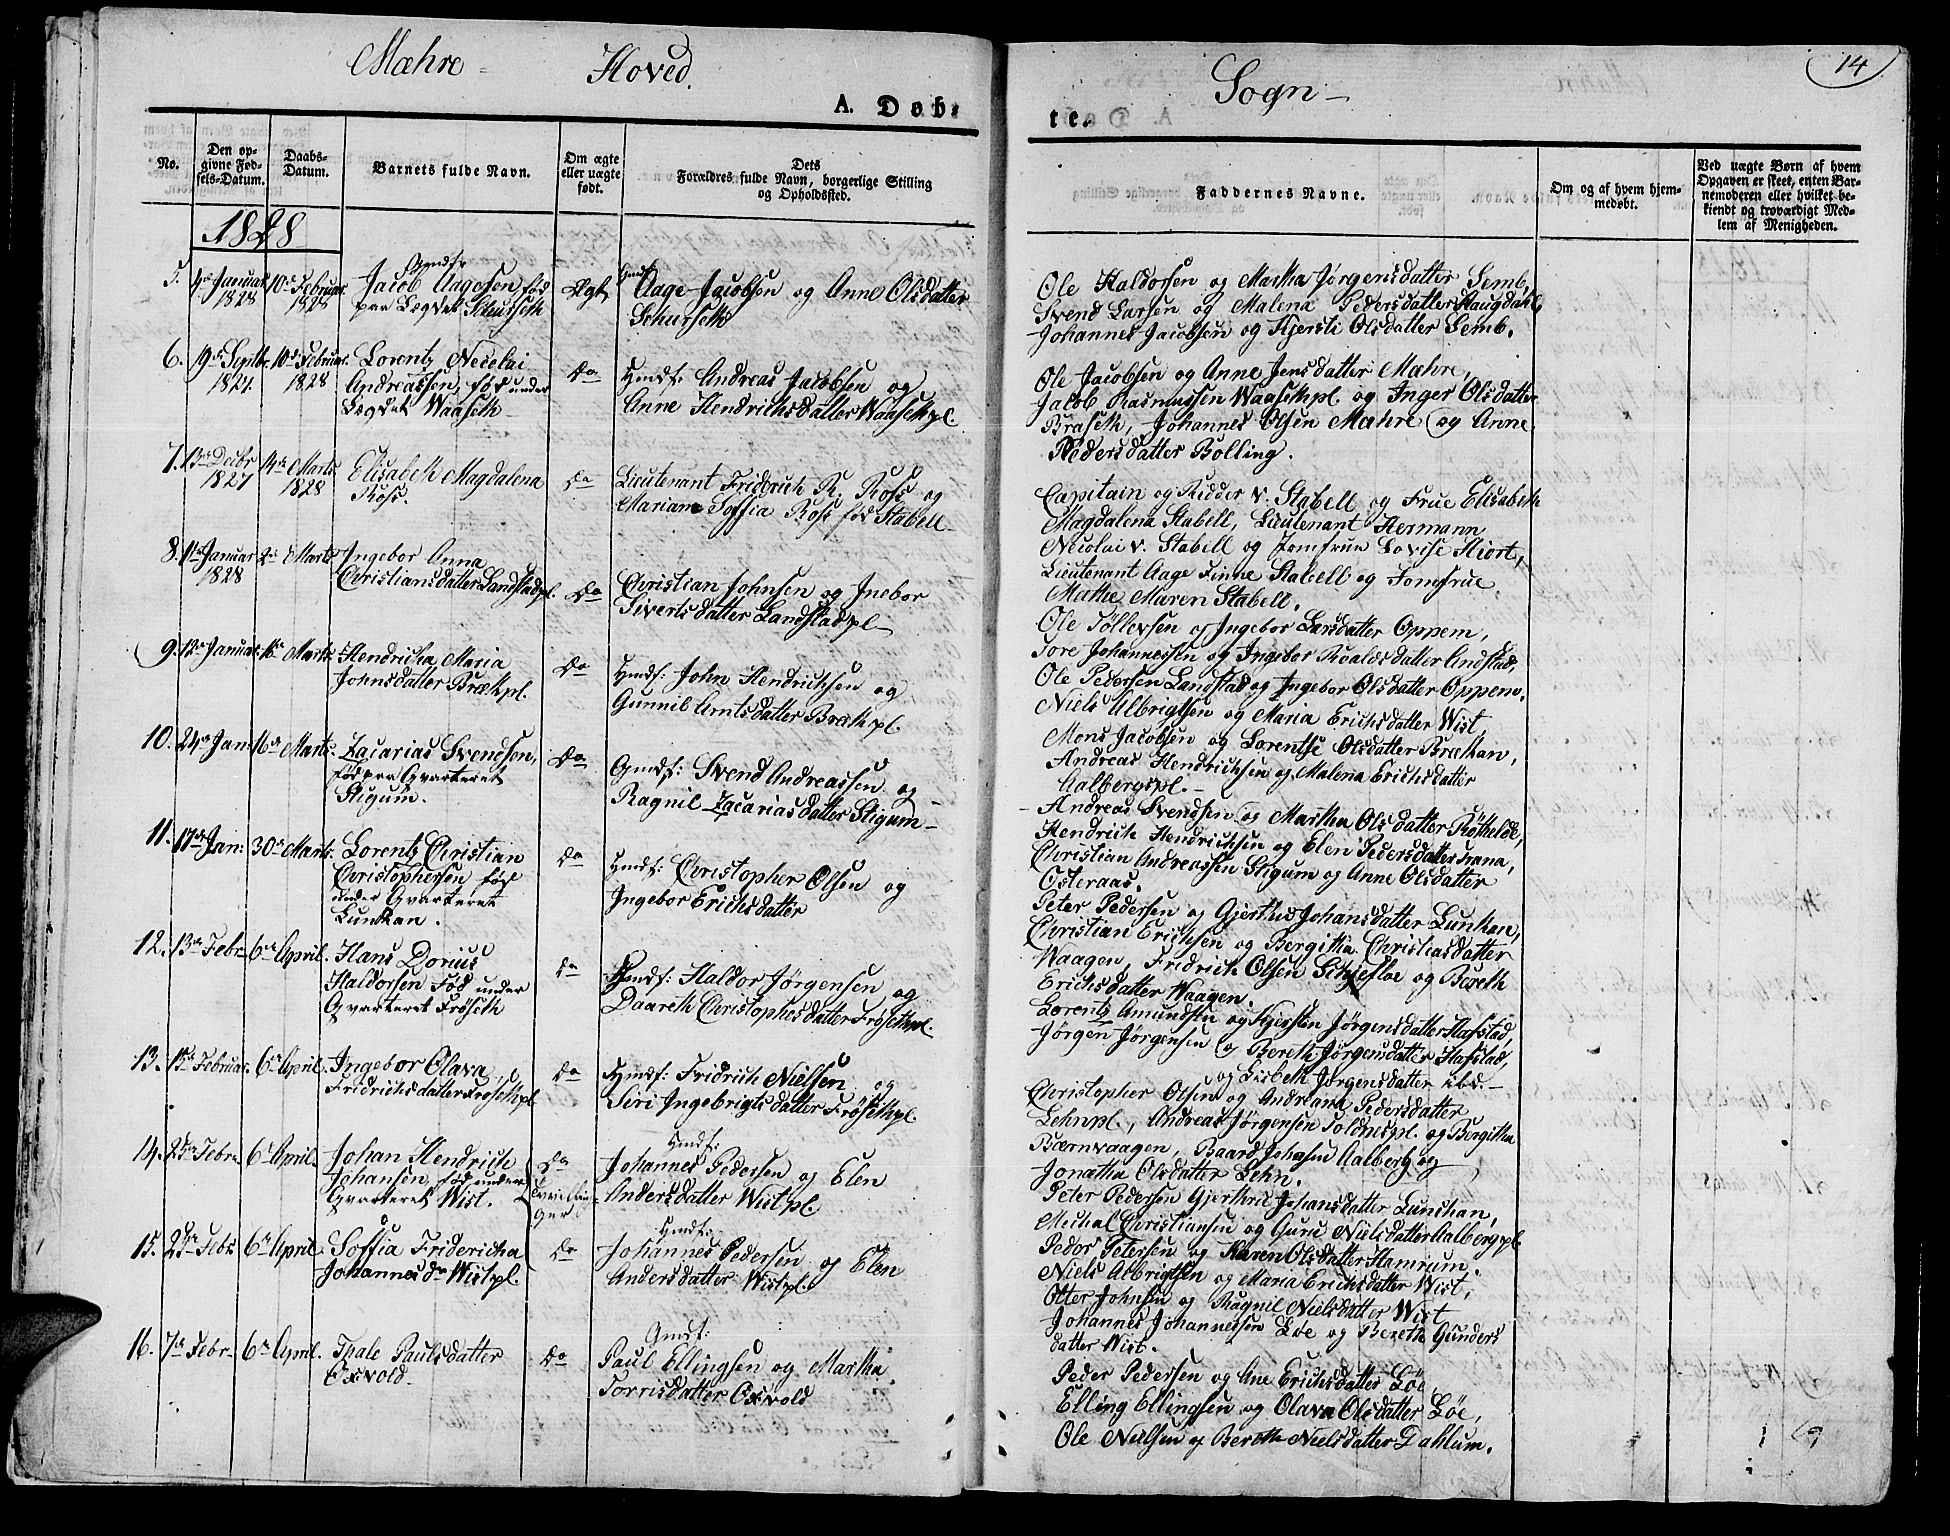 Mæhre - Hoved. Sogn -
14
A. Døb-
te.
No.
Den op-
givne Fød-
sels-Datum.
Daabs-
Datum.
Barnets fulde Navn.
Om ægte
eller uægte
født.
Dets
Forældres fulde Navn, borgerlige Stilling
og Opholdssted.
Faddernes Navne.
Om og af hvem hjem-
medøbt.
Ved uægte Børn af hvem
Opgaven er skeet, enten Bar-
nemoderen eller hvilket be-
kiendt og troværdigt Med-
lem af Menigheden.
1828
5. 4de Januar 1828
10de Februar 1828
Gmdf:
Jacob Aagesen fød
paa Legdet Schurseth
Ægt
Gmdf:
Aage Jacobsen og Anne Olsdatter
Schurseth
Ole Haldorsen og Martha Jørgensdatter Semb,
Svend Larsen og Malena Pedersdatter Haugdahl,
Johannes Jacobsen og Kjersti Olsdatter Semb.
6. 19de Septbr 1827
10de Februar 1828
Lorentz Necolai
Andreassen, fød under
Legdet Waaseth
Do
Hmdf: Andreas Jacobsen og
Anne Hendrichsdatter Waasethpl.
Ole Jacobsen og Anne Jensdatter Mæhre,
Jacob Rasmussen Waasethpl. og Inger Olsdatter
Braseth, Johannes Olsen Mæhre og Anne
Pedersdatter Bolling.
7. 13de Decbr 1827
14de Marts 1828
Elisabeth Magdalena
Ross.
Do
Lieutenant Friderich R. Ross og
Mariane Soffia Ross fød Stabell
Capitain og Ridder v. Stabell og Frue Elisabeth
Magdalena Stabell, Lieutenant Hermann
Necolai v. Stabell og Jomfrue Lovise Hiort,
Lieutenant Aage Finne Stabell og Jomfrue
Mathe Maren Stabell.
8. 11de Januar 1828
2de Marts
Ingebor Anna
Christiansdatter Landstadpl.
Do
Christian Johnsen og Inebor
Sivertsdatter Landstadpl
Ole Tøllevsen og Ingebor Larsdatter Oppem,
Tore Johannessen og Ingebor Roaldsdatter Lindstad,
Ole Pedersen Landstad og Ingebor Olsdatter Oppem.
9. 12de Januar
16de Marts
Hendricka Maria
Johnsdatter Brækpl.
Do
Hmdf: John Hendrichsen og
Gunnil Arntsdatter Brækpl.
Niels Albrigtsen og Maria Erichsdatter Wist,
Mons Jacobsen og Lorentse Olsdatter Brækan,
Andreas Hendrichsen og Malena Erichsdatter
Aalbergspl.
10. 24de Jan
16de Marts
Zacarias Svendsen,
fød paa Qvarteret
Stigum.
Do
Gmdf: Svend Andreassen og
Ragnil Zacariasdatter Stigum
Andreas Svendsen og Martha Olsdatter Røthelde,
Hendrich Hendrichsen og Elen Pedersdatter Frana,
Christian Andreassen Stigum og Anne Olsdatter
Østeraas.
11. 17de Jan:
30de Marts
Lorentz Christian
Christophersen fød
under Qvarteret
Lunkan.
Do
Hmdf: Christopher Olsen og
Ingebor Erichsdatter
Peter Pedersen og Gjertrud Johansdatter Lunkan,
Christian Erichsen og Bergitha Christiasdatter
Waagen, Fridrich Olsen Schjefloe og Bereth
Erichsdatter Waagen.
12. 13de Febr.
6te April.
Hans Dorius
Haldorsen Fød under
Qvarteret Frøseth
Do
Hmdf: Haldor Jørgensen og
Daareth Christophesdatter Frøsethpl.
Lorentz Amundsen og Kjersten Jørgensdatter Hafstad,
Jørgen Jørgensen og Bereth Jørgensdatter Hafstad,
og Lisbeth Jørgensdatter ibd.
13. 15de Februar.
6te April.
Ingebor Olava
Fridrichsdatter Frøsethpl
Do
Hmdf: Fridrich Nielsen og
Siri Ingebrigtsdatter Frøsethpl.
Christopher Olsen og Andreana Pedersdatter
Lehnpl., Andreas Jørgensen Toldnespl. og Bergitha
Bærnvaagen, Baard Johnsen Aalberg og
Jonatha Olsdatter Lehn.
14. 25de Febr.
6te April.
Johan Hendrich
Johansen, fød under
Qvarteret Wist.
Do
Tvillin-
ger
Hmdf:
Johannes Pedersen og Elen
Andersdatter Wistpl.
Peter Pedersen Gjerthrud Johansdatter Lunchan,
Michal Christiansen og Guru Nielsdatter Aalbergpl.
Peder Petersen og Karen Olsdatter Hamrum.
15. 25de Febr.
6te April.
Soffia Fridericha
Johannesdr Wistpl.
Do
Hmdf:
Johannes Pedersen og Elen
Andersdatter Wistpl.
Niels Albrigtsen og Maria Erichsdatter Wist,
Otter Johnsen og Ragnil Nielsdatter Wist
Johannes Johannessen Løe og Bereth Gunders
datter Wist.
16. 7de Febr.
6te April.
Thale Paulsdatter
Oxvold
Do
Gmdf:
Paul Ellingsen og Martha
Torrisdatter Oxvold
Peder Pedersen og Ane Erichsdatter Løe,
Elling Ellingsen og Olava Olsdatter Løe,
Ole Nielsen og Berethe Nielsdatter Dahlum.